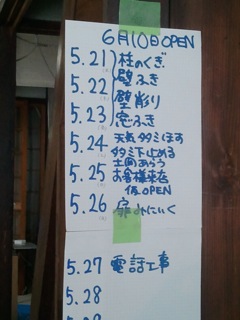 6月10日OPEN
5.21）柱のくぎ
5.22 壁ふき
5.23 壁彫り
窓ふき
5.24 天気 タタミほす
タタミ下止める
土間あらう
5.25 お客様来店
仮OPEN
5.26 扉みにいく
5.27 電話工事
5.28